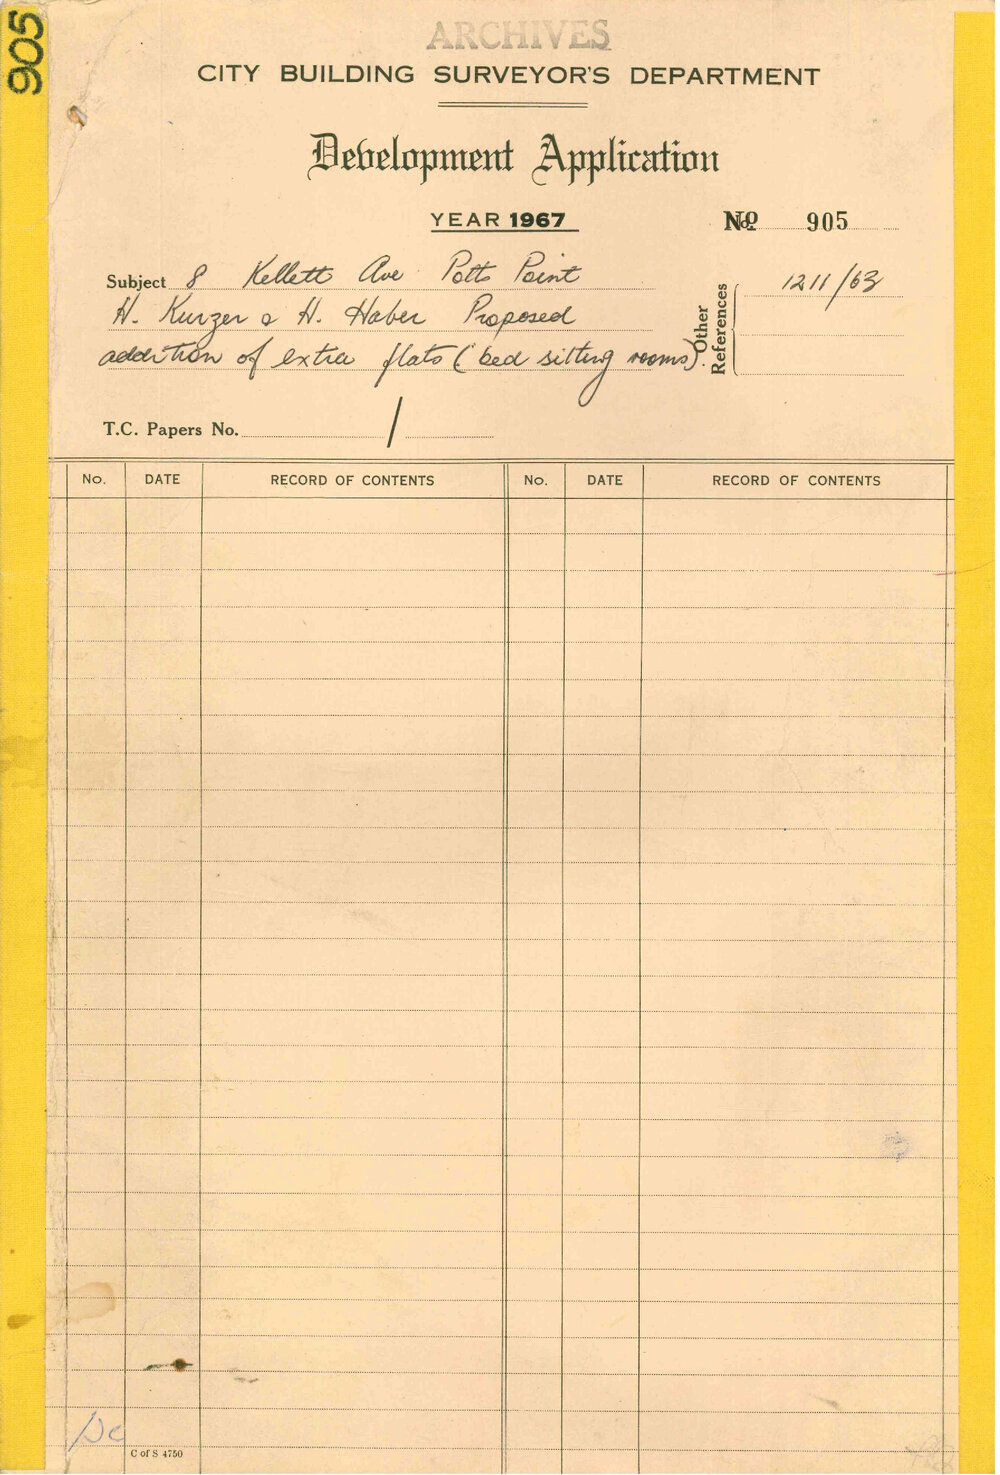 905
ARCHIVES
CITY BUILDING SURVEYOR'S DEPARTMENT
Development Application
YEAR 1967
No 905
Subject 8 Kellett Ave Potts Point
H. Kurzer & H. Haber Proposed
addition of extra flats (bed sitting rooms).
Other References 1211/63
T.C. Papers No. /
No. DATE RECORD OF CONTENTS No. DATE RECORD OF CONTENTS
C of S 4750